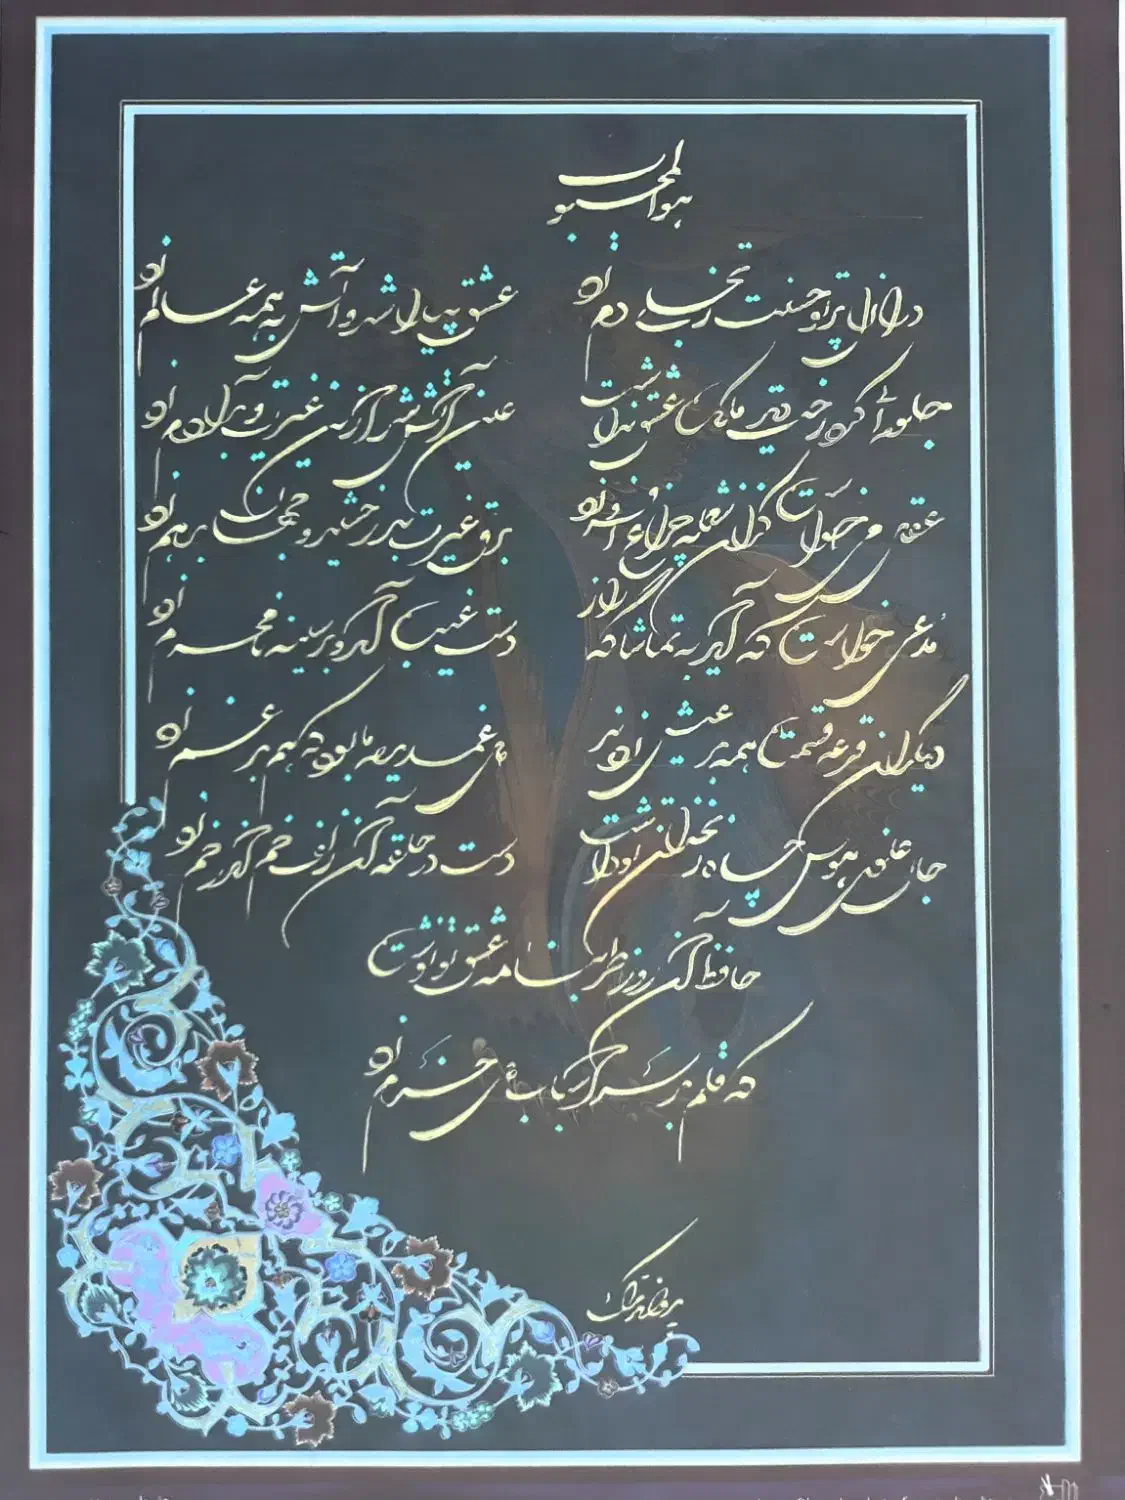 هوالمحبوب
در ازل پرتو حسنت ز تجلی دم زد عشق پیدا شد و آتش به همه عالم زد
جلوه‌ای کرد رخت دید ملک عشق نداشت عین آتش شد از این غیرت و بر آدم زد
عقل می خواست کزان شعله چراغ افروزد برق غیرت بدرخشید و جهان برهم زد
مدعی خواست که آید به تماشاگه راز دست غیب آمد و بر سینه نامحرم زد
دیگران قرعه قسمت همه بر عیش زدند دل غمدیده ما بود که هم بر غم زد
جان علوی هوس چاه زنخدان تو داشت دست در حلقه آن زلف خم اندر خم زد
حافظ آن روز طربنامه عشق تو نوشت
که قلم بر سر اسباب دل خرم زد